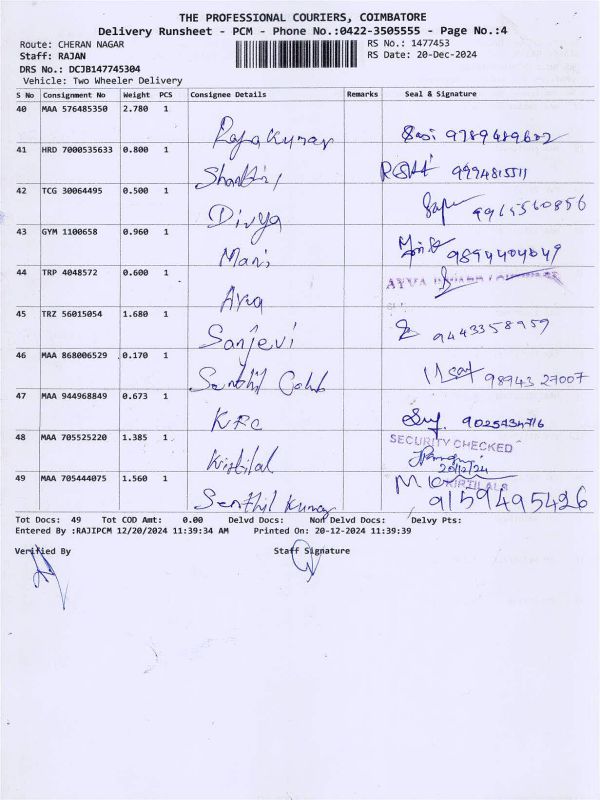 THE PROFESSIONAL COURIERS, COIMBATORE
Delivery Runsheet - PCM - Phone No.:0422-3505555 - Page No.:4
Route: CHERAN NAGAR
RS No.: 1477453
Staff: RAJAN
RS Date: 20-Dec-2024
DRS No.: DCJB147745304
Vehicle: Two Wheeler Delivery
S No Consignment No Weight PCS Consignee Details Remarks Seal & Signature
40 MAA 576485350 2.780 1
Rajakumar Sasi
41 HRD 7000535633 0.800 1
Shanthi
42 TCG 30064495 0.500 1
Divya
43 GYM 1100658 0.960 1
Mani
44 TRP 4048572 0.600 1
Ayya AYVA
45 TRZ 56015054 1.680 1
Sanjevi 9443358959
46 MAA 868006529 0.170 1
Senthil 98943 27007
47 MAA 944968849 0.673 1
KRC
48 MAA 705525220 1.385 1
SECURITY CHECKED
Kirtilal
20/12/24
49 MAA 705444075 1.560 1
KIRTILALS
Senthil Kumar 9159495426
Tot Docs: 49 Tot COD Amt: 0.00 Delvd Docs: Non Delvd Docs: Delvy Pts:
Entered By :RAJIPCM 12/20/2024 11:39:34 AM Printed On: 20-12-2024 11:39:39
Verified By Staff Signature